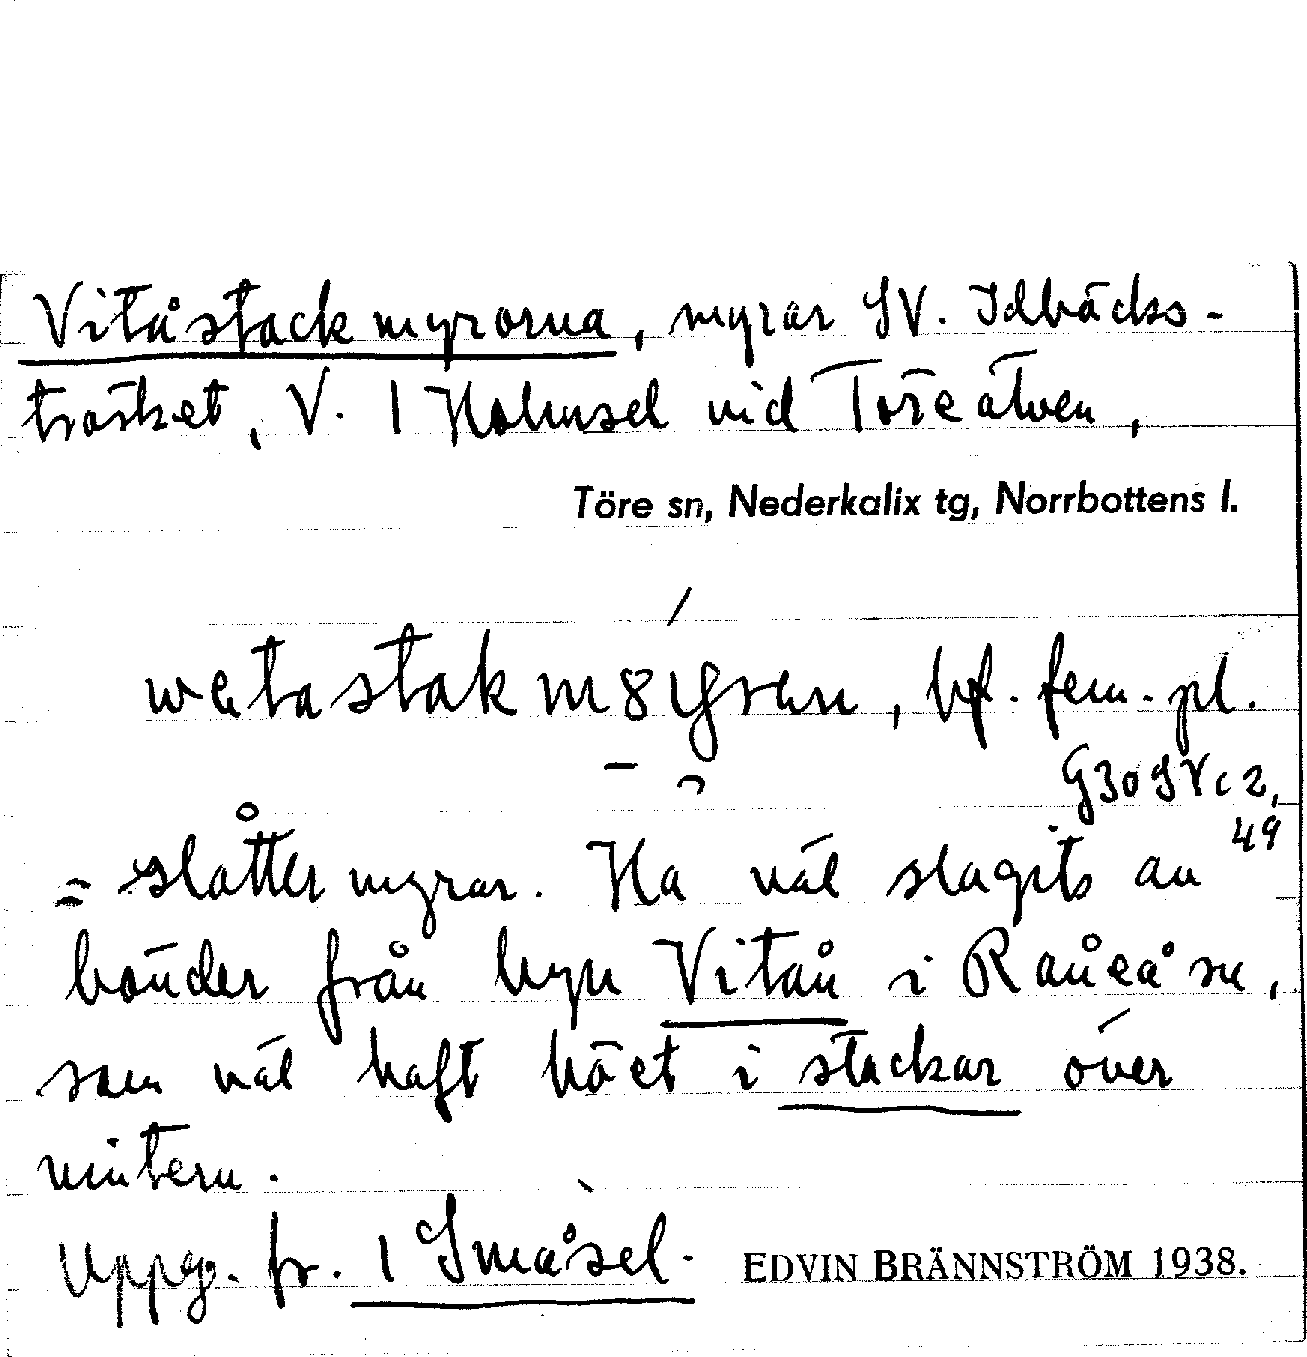 Vitåstackmyrorna, myrar SV. Idbäcks-
träsket, V. 1 Holmsel vid Töreälven,
Töre sn, Nederkalix tg, Norrbottens l.
bf. fem. pl.
G30SVc2,
49
= slåttermyrar. Ha väl slagits av
bönder från byn Vitån i Råneå sn,
som väl haft höet i stackar över
vintern.
Uppg. fr. 1 Småsel.
EDVIN BRÄNNSTRÖM 1938.